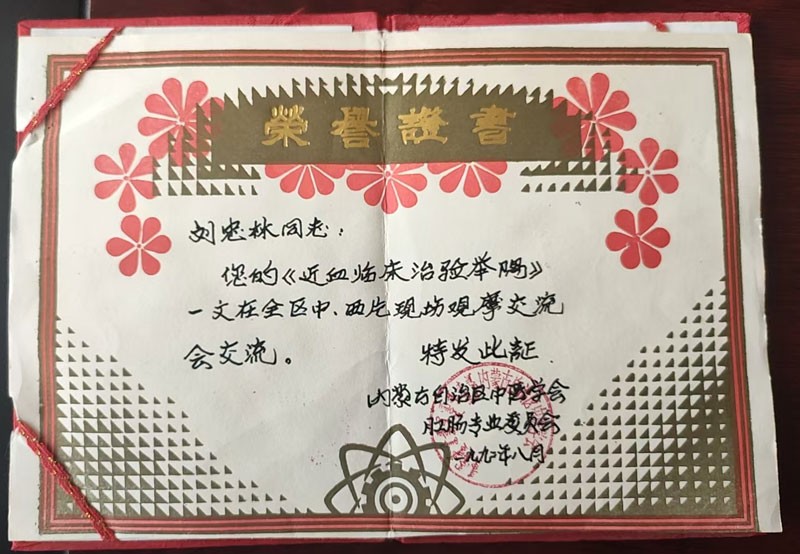 榮譽證書
刘忠林同志：
您的《近血临床治验举隅》
一文在全区中、西片现场观摩交流
会交流。 特发此証
内蒙古自治区中医学会
肛肠专业委员会
一九九〇年八月